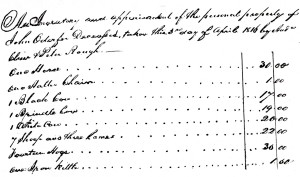 An Inventory and appraisement of the personal property of
John Deceased, taken this 3rd day of April 1816 by
& Peter Rough
One Horse 30.00
One Halter Chain 1.00
1 Black Cow 17.00
1 Brindle Cow 14.00
1 White Cow 20.00
7 Sheep and three Lambs 22.00
Fourteen Hogs 30.00
One Iron Kettle 1.00